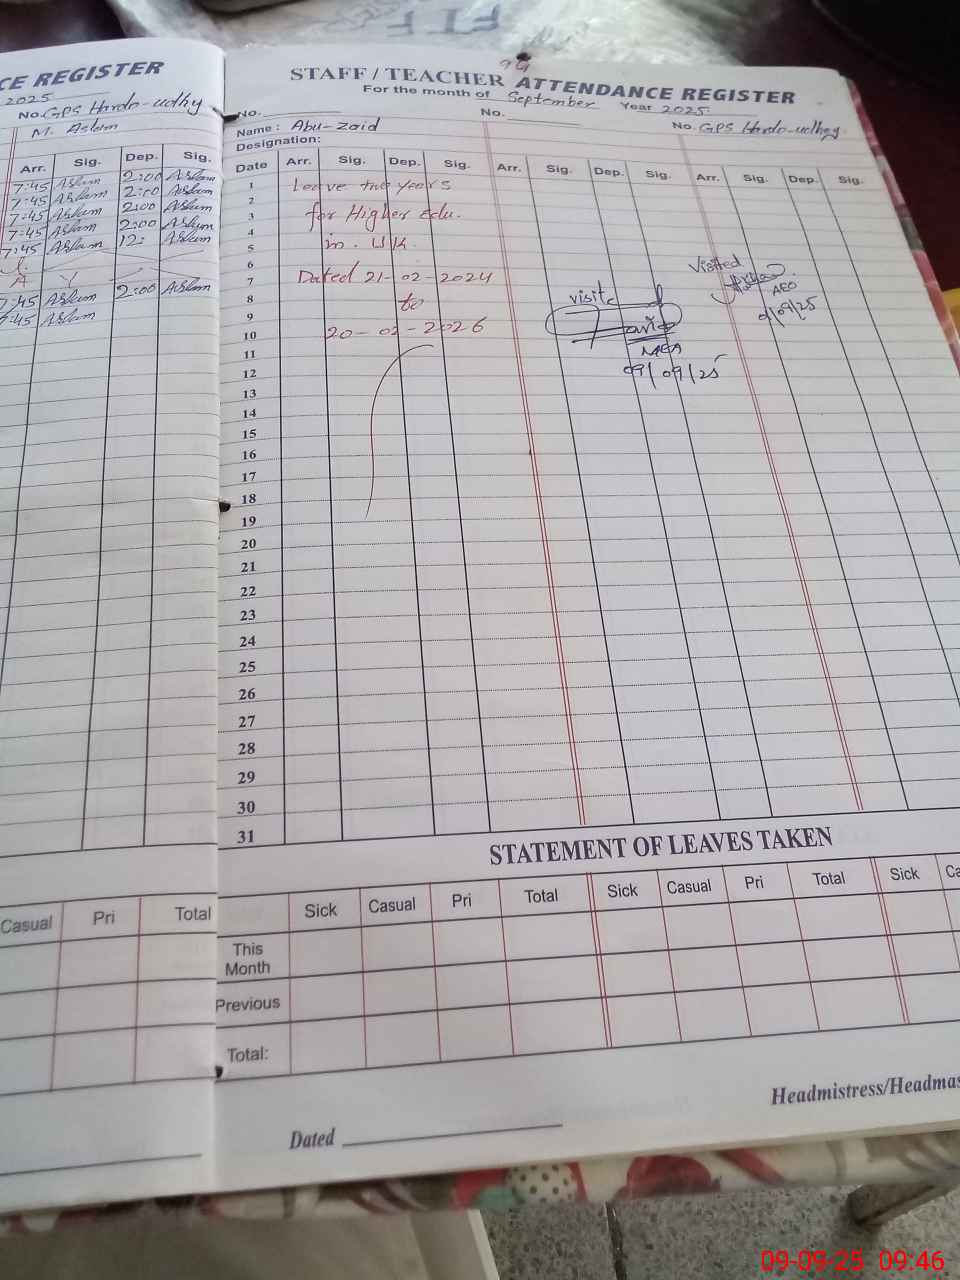 CE REGISTER
2025
No. GPS Hardo-udhy
M. Aslam
Arr. Sig. Dep. Sig.
7:45 Aslam 2:00 Aslam
7:45 Aslam 2:00 Aslam
7:45 Aslam 2:00 Aslam
7:45 Aslam 2:00 Aslam
7:45 Aslam 12: Aslam
A
7:45 Aslam 2:00 Aslam
7:45 Aslam
Casual Pri Total
STAFF / TEACHER ATTENDANCE REGISTER
For the month of September Year 2025
No. No. No. GPS Hardo-udhey
Name: Abu-zaid
Designation:
Date Arr. Sig. Dep. Sig. Arr. Sig. Dep. Sig. Arr. Sig. Dep. Sig.
1 Leave two years
2
3 for Higher Edu.
4
5 in. UK.
6
7 Dated 21-02-2024
8 to
9
10 20-02-2026
11
12
13
14
15
16
17
18
19
20
21
22
23
24
25
26
27
28
29
30
31
visited
MEA
09/09/25
Visited
AEO
9/09/25
STATEMENT OF LEAVES TAKEN
Sick Casual Pri Total Sick Casual Pri Total Sick Ca
This Month
Previous
Total:
Headmistress/Headmas
Dated
09-09-25 09:46